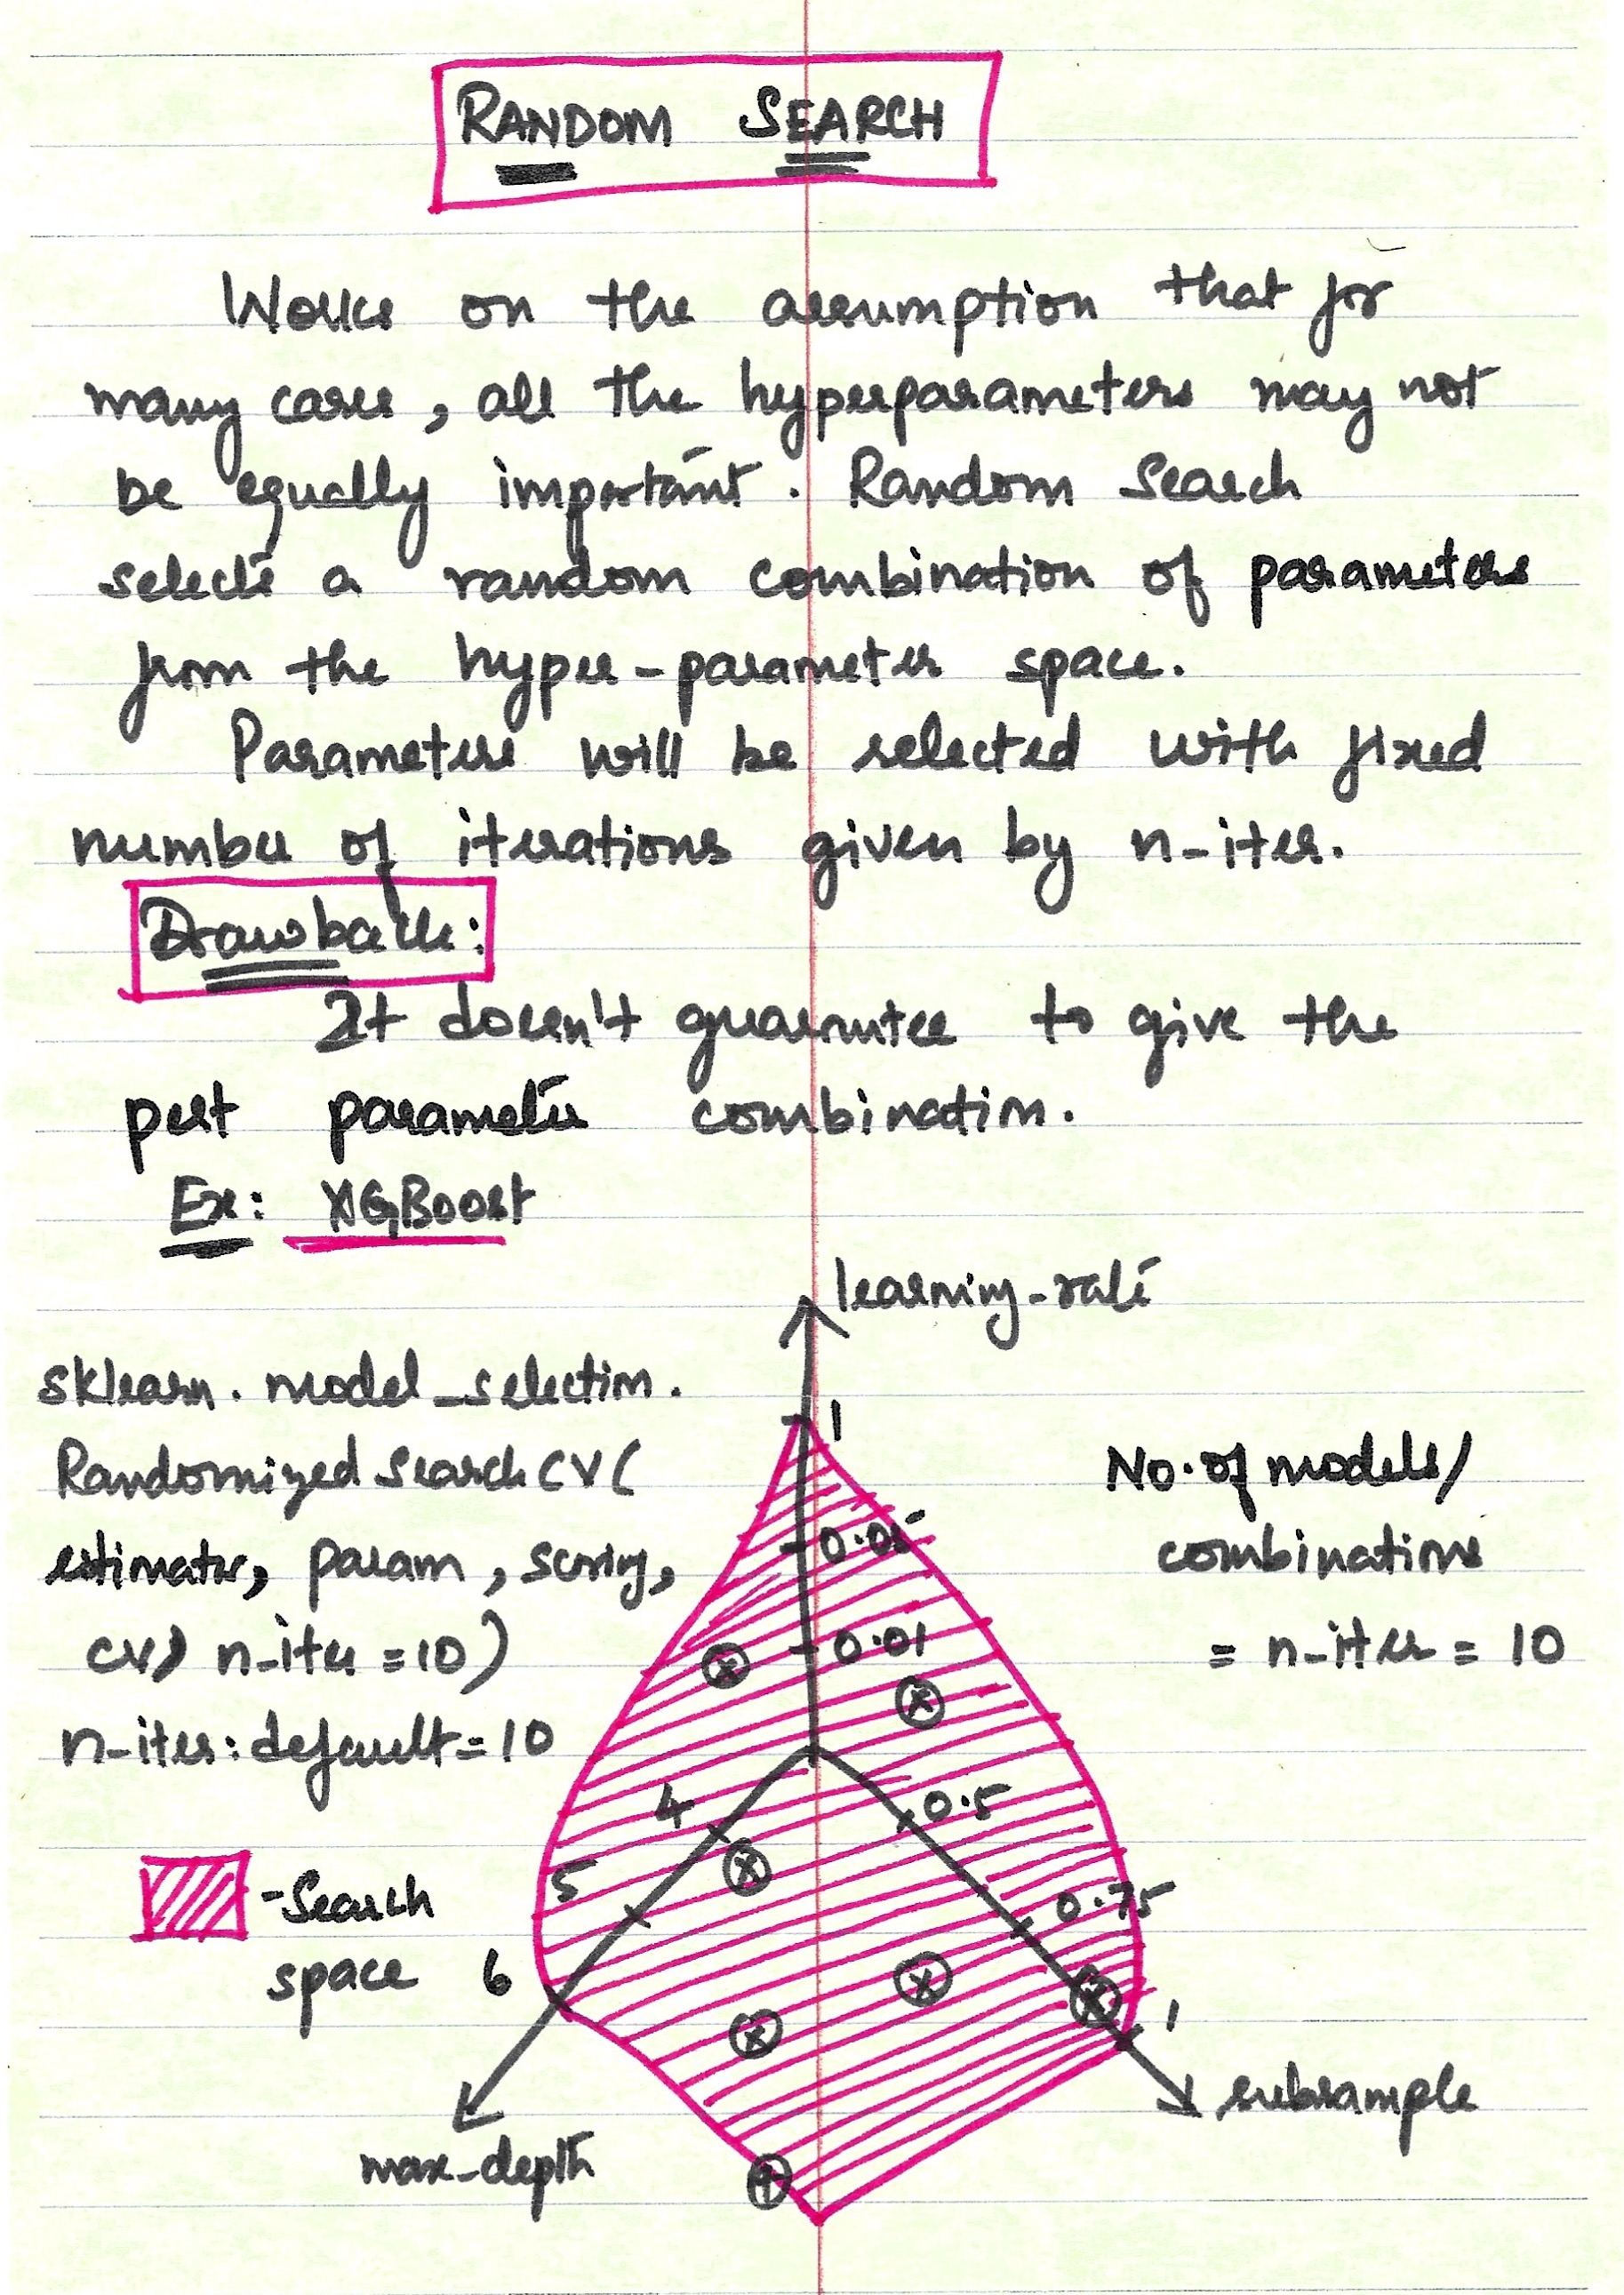 RANDOM SEARCH
Works on the assumption that for
many cases, all the hyperparameters may not
be equally important. Random Search
selects a random combination of parameters
from the hyper-parameter space.
Parameters will be selected with fixed
number of iterations given by n-iter.
Drawback:
It doesn't guarantee to give the
best parameter combination.
Ex: XGBoost
learning-rate
sklearn. model_selection.
RandomizedSearchCV(
estimator, param, scoring,
cv, n-iter=10)
n-iter: default=10
No. of models/
combinations
= n-iter = 10
1
0.05
0.01
4
5
6
0.5
0.75
1
-Search
space
max-depth
subsample